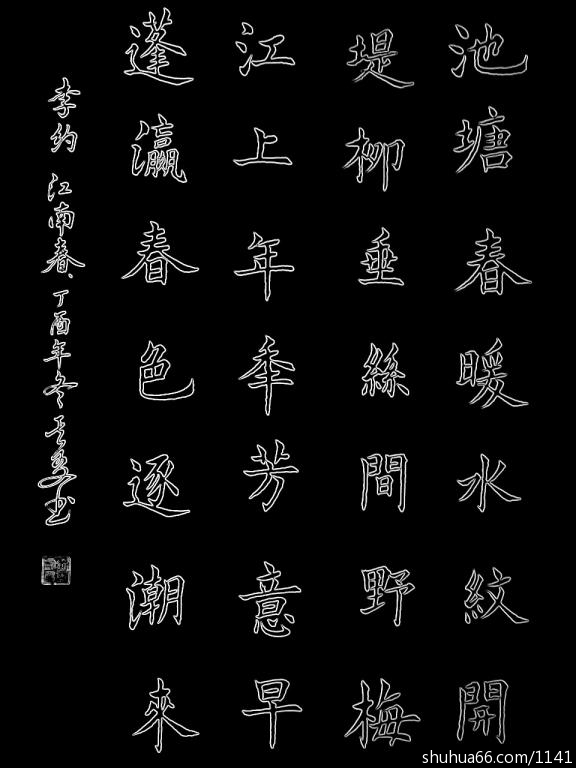 池塘春暖水紋開
堤柳垂絲間野梅
江上年秊芳意早
蓬瀛春色逐潮來
李约 江南春、丁酉年冬 书
shuhua66.com/1141